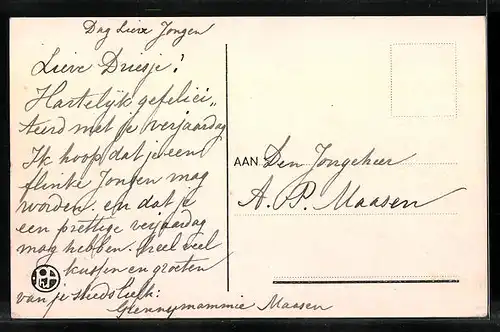 Dag Lieve Jongen
Lieve Driesje!
Hartelijk gefelici„
teerd met je verjaardag
Ik hoop dat je een
flinke Jongen mag
worden. en dat je
een prettige verjaardag
mag hebben. heel veel
kussen en groeten
van je liefh:
Maasen
AAN Den Jongeheer
A. P. Maasen